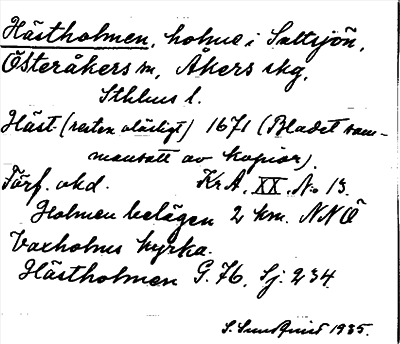 Hästholmen, holme i Saltsjön,
Österåkers sn, Åkers skg,
Sthlms l.
Häst- (resten oläsligt) 1671 (Bladet sam-
mansatt av kopior)
Förf. okd. Kr A, XX, No 13.
Holmen belägen 2 km. NNÖ
Vaxholms kyrka.
Hästholmen G. 76, Sj: 234.
S. Sundquist 1935.